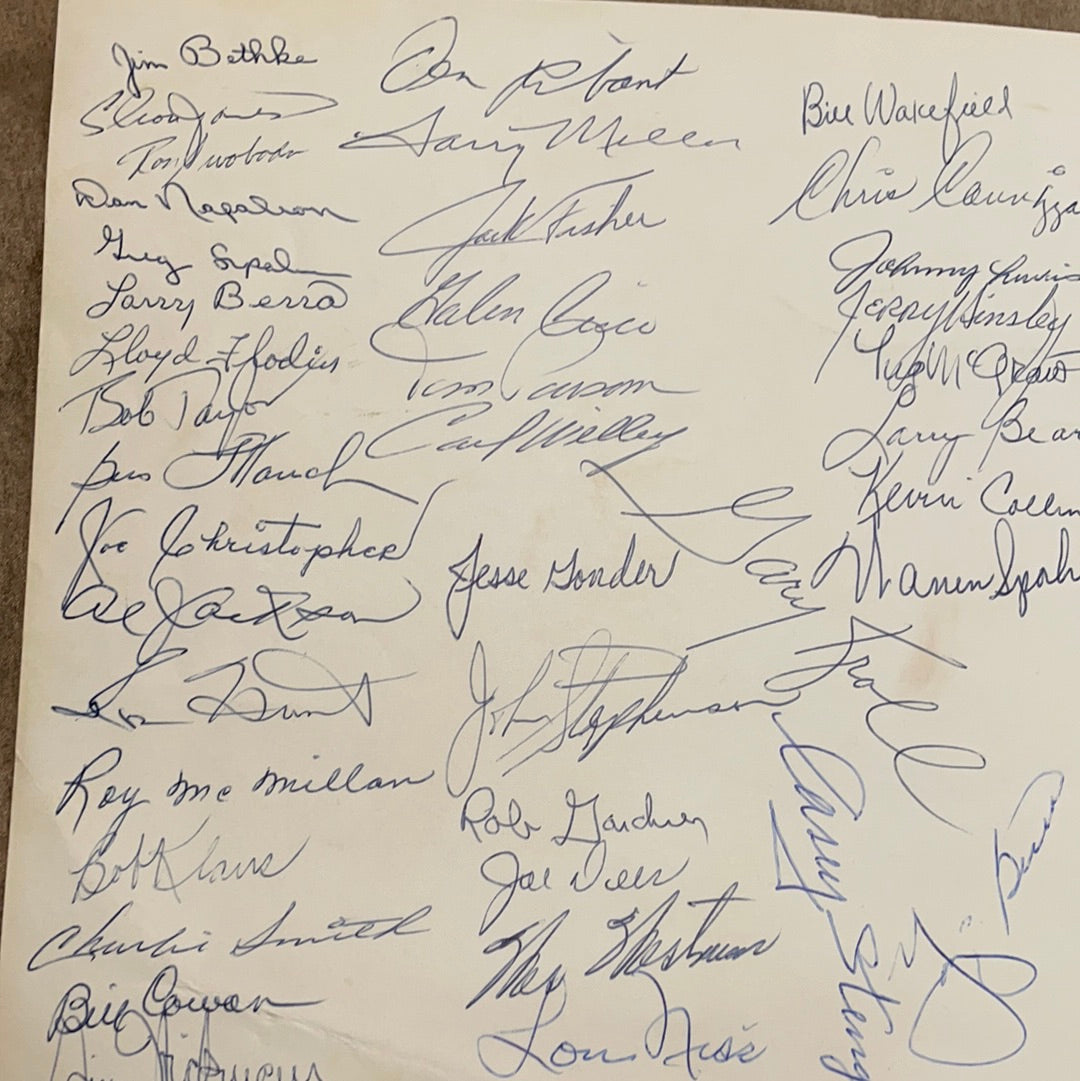 Jim Bethke
Cleon Jones
Ron Swoboda
Dan Napoleon
Greg
Larry Berra
Lloyd Flodin
Bob Taylor
Gus Mauch
Joe Christopher
Al Jackson
Ron Hunt
Roy McMillan
Bob Klaus
Charlie Smith
Bill Cowan
Jim Hickman
Den Ribant
Larry Miller
Jack Fisher
Galen Cisco
Tom Parsons
Carl Willey
Gary Kroll
Jesse Gonder
John Stephenson
Rob Gardner
Joe
Wes Westrum
Lou Niss
Bill Wakefield
Chris Cannizza
Johnny Lewis
Jerry Hinsley
Tug McGraw
Larry Bear
Kevin Collin
Warren Spahn
Casey Steng